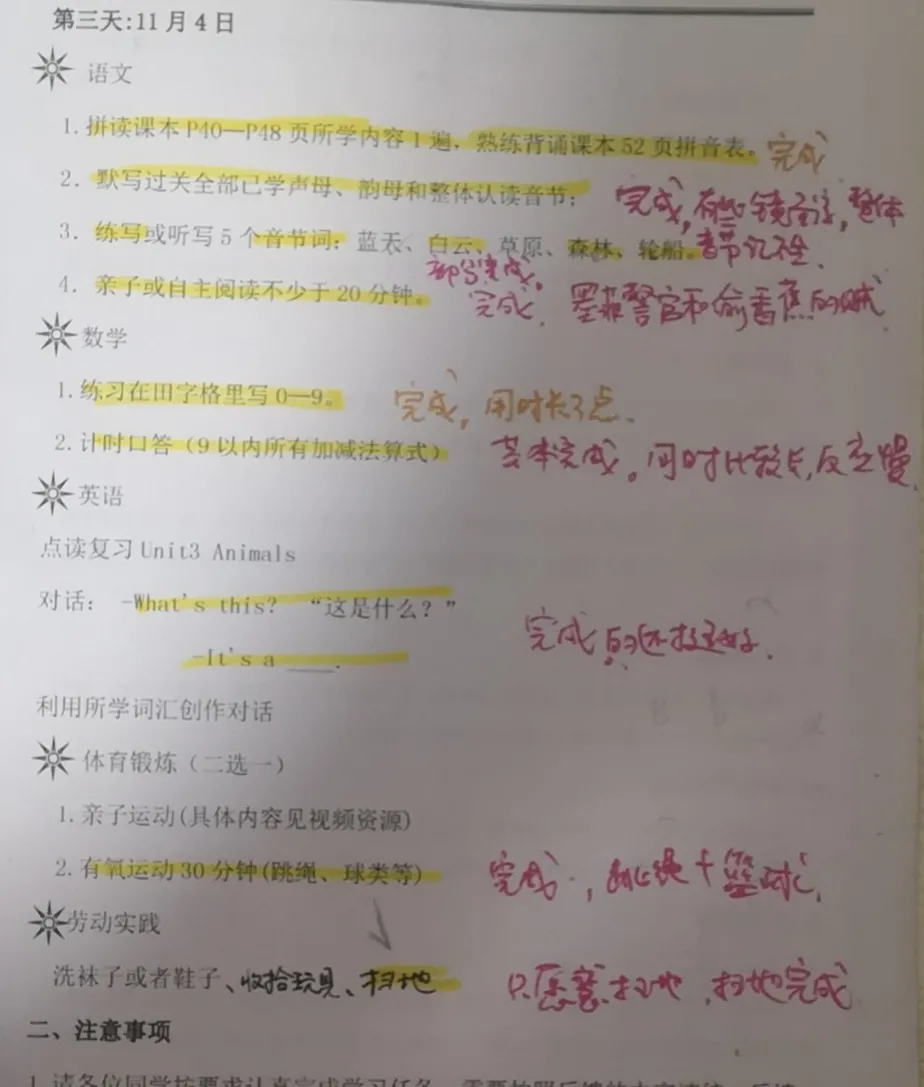 第三天:11月4日
语文
1.拼读课本P40—P48页所学内容1遍，熟练背诵课本52页拼音表。完成
2.默写过关全部已学声母、韵母和整体认读音节；完成,有些镜面字,整体音节记不全.
3.练写或听写5个音节词：蓝天、白云、草原、森林、轮船。部分完成。
4.亲子或自主阅读不少于20分钟。完成.警官和偷香蕉的贼
数学
1.练习在田字格里写0—9。完成,用时长了点.
2.计时口答（9以内所有加减法算式）基本完成。用时比较长,反应慢.
英语
点读复习Unit3 Animals
对话：-What's this? “这是什么？”
-It's a ___.完成的还挺好.
利用所学词汇创作对话
体育锻炼（二选一）
1.亲子运动(具体内容见视频资源)
2.有氧运动30分钟(跳绳、球类等)完成.,跳绳+篮球,
劳动实践
洗袜子或者鞋子、收拾玩具、扫地 只愿意扫地,扫地完成
二、注意事项
1.请各位同学按要求认真完成学习任务